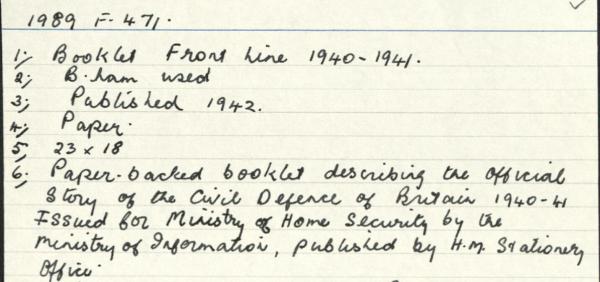 1989 F. 471.
1; Booklet Front Line 1940-1941.
2; B.ham used
3; Published 1942.
4; Paper.
5; 23 x 18
6; Paper-backed booklet describing the official
Story of the Civil Defence of Britain 1940-41
Issued for Ministry of Home Security by the
Ministry of Information, published by H.M. Stationery
Office.